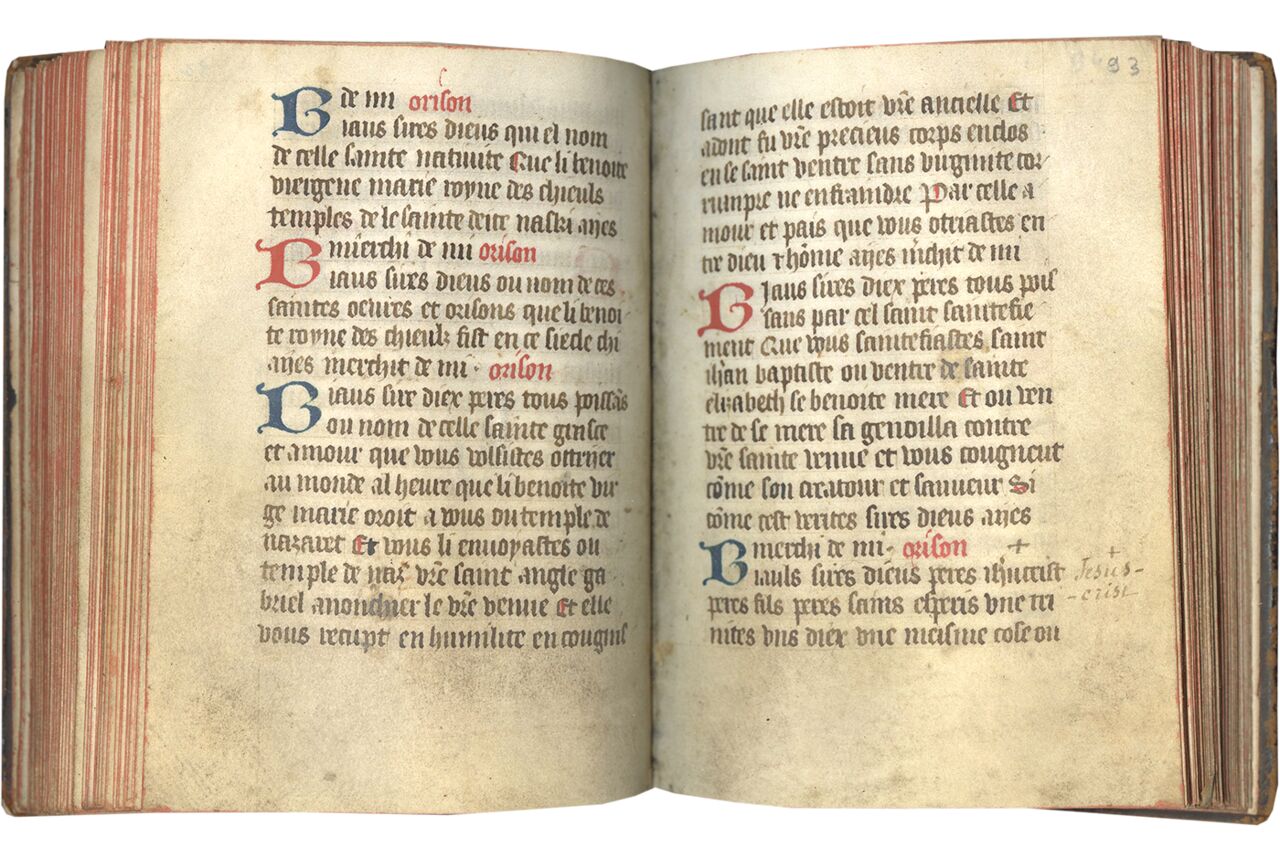 de mi orison
Biaus sires diens qui el nom
de celle sainte natiuite Que li benoite
viergene marie royne des chieuls
temples de le sainte deite naski aies
merchi de mi orison
Biaus sires diens ou nom de ces
saintes oeures et orisons que li benoi
te royne des chieuls fist en ce siecle chi
aies merchit de mi · orison
Biaus sire diex peres tous poissās
ou nom de celle sainte
et amour que vous volsistes ottryer
au monde al heure que li benoite vir
ge marie oroit a vous ou temple de
nazaret Et vous li enuoyastes ou
temple de naz vr̄e saint angle ga
briel anonchier le vr̄e venue Et elle
vous rechupt en humilite en
93
sant que elle estoit vr̄e ancielle Et
adont fu vr̄e precieus corps enclos
en se saint ventre sans virginite cor
rumpre ne enfraindre Par celle a
mour et pais que vous otriastes en
tre dieu ⁊ hōme aies m̄chit de mi
Biaus sires diex peres tous puis
sans par cel saint saintefie
ment Que vous saintefiastes saint
ih̄an baptiste ou ventre de sainte
elizabeth se benoite mere Et ou ven
tre de se mere sa genoilla contre
vr̄e sainte venue et vous congneut
cōme son creatour et sauueur Si
cōme cest verites sires dieus aies
merchi de mi · orison +
Biauls sires dieus peres ih̄ucrist
+ Jesus-
-crist
peres fils peres sains esperis vne tri
nites vns diex vne meisme cose ou